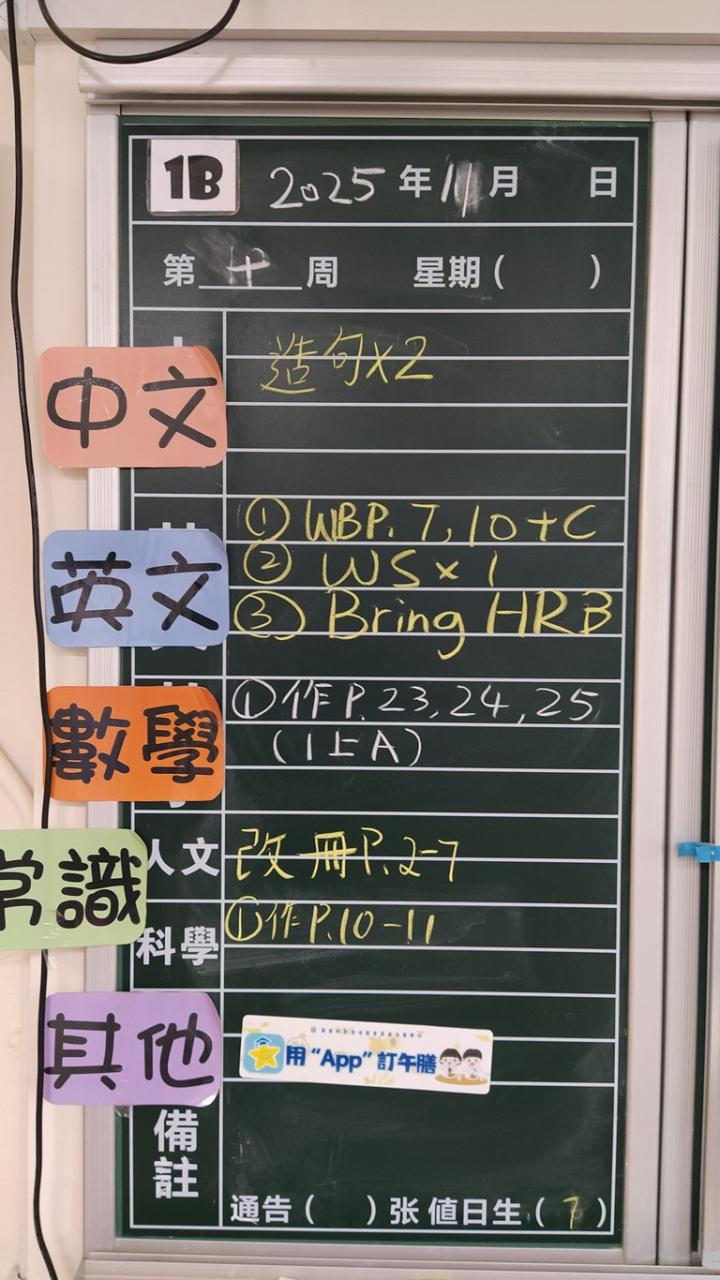 1B 2025 年 11 月 日
第 十 周 星期( )
中文 造句x2
英文 ① WBP. 7, 10 + C
② WS x 1
③ Bring HRB
數學 ① 作 P. 23, 24, 25
(1上A)
常識
人文 改冊P.2-7
科學 ①作P.10-11
其他
用“App”訂午膳
備註
通告( )张 值日生(7)